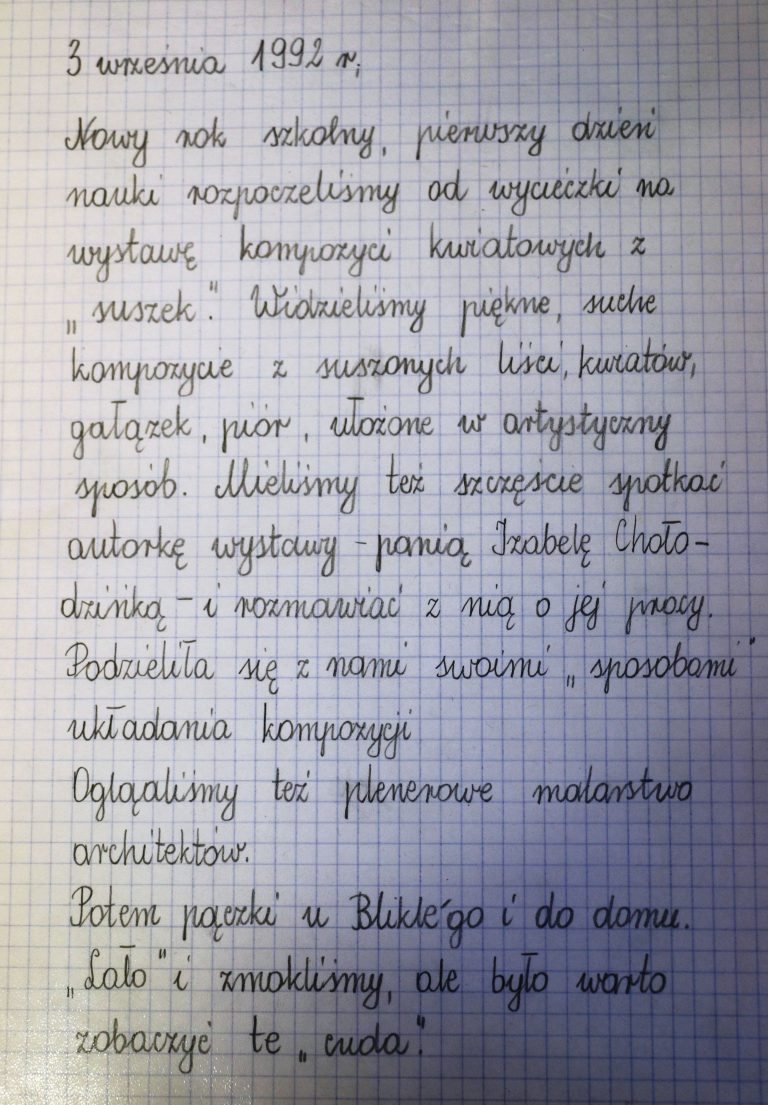 3 września 1992 r,
Nowy rok szkolny, pierwszy dzień
nauki rozpoczeliśmy od wycieczki na
wystawę kompozyci kwiatowych z
„suszek". Widzieliśmy piękne, suche
kompozycie z suszonych liści, kwiatów,
gałązek, piór, ułożone w artystyczny
sposób. Mieliśmy też szczęście spotkać
autorkę wystawy - panią Izabelę Choło-
dzińką - i rozmawiać z nią o jej pracy.
Podzieliła się z nami swoimi „sposobami"
układania kompozycji
Ogląaliśmy też plenerowe malarstwo
architektów.
Potem pączki u Blikle'go i do domu.
„Lało" i zmokliśmy, ale było warto
zobaczyć te „cuda".